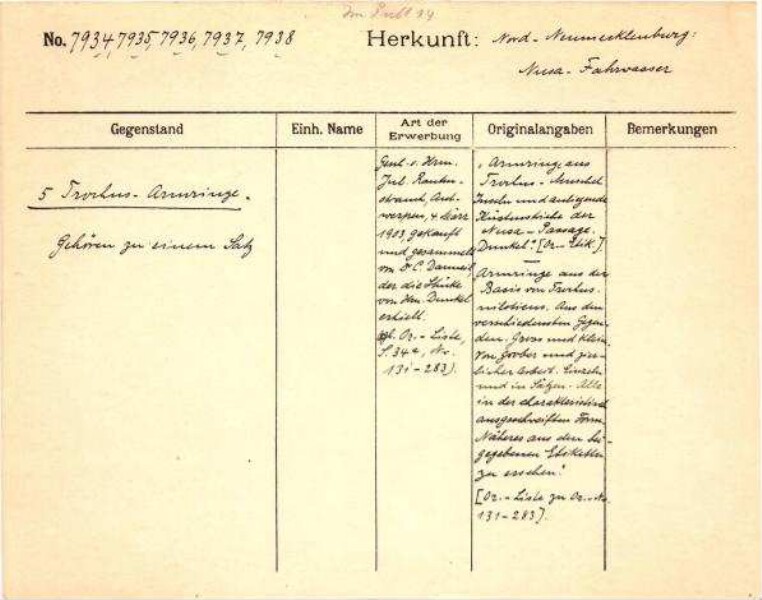 No. 7934, 7935, 7936, 7937, 7938
Herkunft: Nord-Neumecklenburg:
Nusa-Fahrwasser
Gegenstand
Einh. Name
Art der
Erwerbung
Originalangaben
Bemerkungen
5 Trochus-Armringe.
Gehören zu einem Satz
Gesch. v. Hrn.
Jul. Rauten-
strauch, Ant-
werpen, 4. März
1903, gekauft
und gesammelt
von Dr C. Danneil,
der die Stücke
von Hrn. Dunkel
erhielt.
Or.-Liste,
S. 34a, No.
131-283).
"Armringe aus
Trochus-Muschel
Inseln und anliegende
Küstenstriche der
Nusa-Passage.
Dunkel". [Or-Etik.].
"Armringe aus der
Basis von Trochus.
niloticus. Aus den
verschiedensten Gegen-
den. Gross und klein
von grober und zier-
licher Arbeit. Einzeln
und in Sätzen. Alle
in der charakteristisch
ausgeschweiften Form
Näheres aus den bei-
gegebenen Etiketten
zu ersehen".
[Or.-Liste zu Or.-No.
131-283].